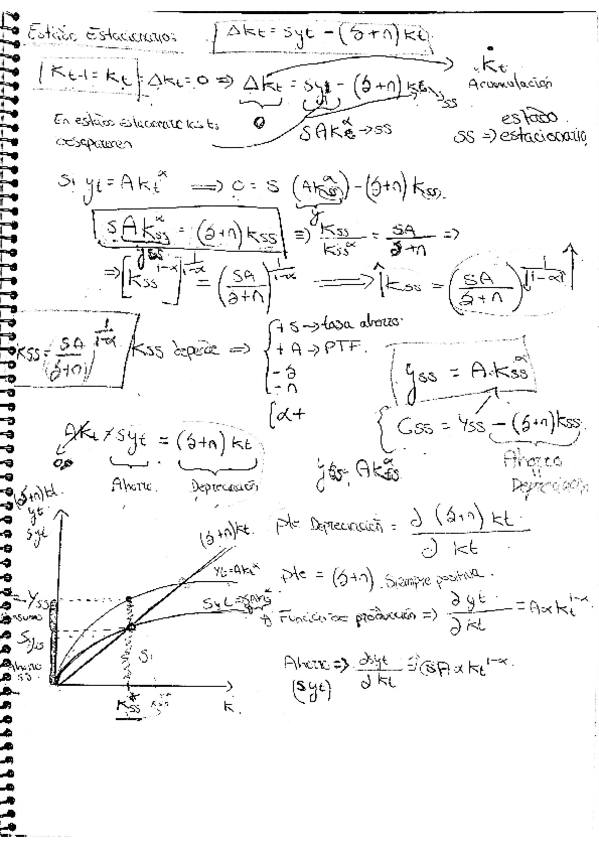 Estado Estacionario: Δkt = syt − (δ+n) kt
kt-1 = kt = Δkt = 0 ⇒ Δkt = syt − (δ+n) kt → ss
k̇t Acumulación
0
En estado estacionario las ts desaparecen
sAktα → ss
estado
ss ⇒ estacionario
Si yt = Aktα ⟹ 0 = s (Akssα) − (δ+n) kss
y
sAkssα = (δ+n) kss ⇒ kss/kssα = sA/(δ+n) ⇒
yss
⇒ [kss1-α]1/(1-α) = (sA/(δ+n))1/(1-α) ⟹ ↑kss = (sA/(δ+n))1/(1-α) ↑
kss = (sA/(δ+n))1/(1-α) kss depende ⇒
+ s → tasa ahorro
+ A → PTF.
- δ
- n
α+
yss = A·kssα
Css = yss − (δ+n) kss
Ahorro
=
Depreciación
Δkt ≠ syt = (δ+n) kt
Ahorro Depreciación
yss = Akssα
(δ+n)kt
yt
syt
(δ+n)kt
yt = Aktα
syt = sAktα
yss
Syss
Ahorro
ss
S
kss*
k
pte Depreciación = ∂(δ+n) kt / ∂kt
pte = (δ+n). Siempre positiva.
Función de producción ⇒ ∂yt/∂kt = Aαkt1-α
Ahorro ⇒ ∂syt/∂kt = (sAαkt1-α
(syt)